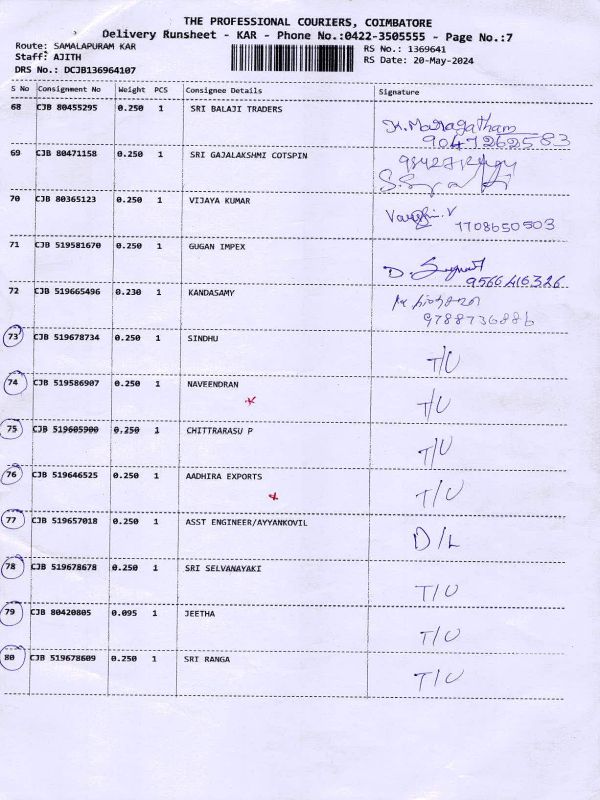 THE PROFESSIONAL COURIERS, COIMBATORE
Delivery Runsheet - KAR - Phone No.:0422-3505555 - Page No.:7
Route: SAMALAPURAM KAR
RS No.: 1369641
Staff: AJITH
RS Date: 20-May-2024
DRS No.: DCJB136964107
S No Consignment No Weight PCS Consignee Details Signature
68 CJB 80455295 0.250 1 SRI BALAJI TRADERS
K. Maragatham
9047262583
69 CJB 80471158 0.250 1 SRI GAJALAKSHMI COTSPIN
70 CJB 80365123 0.250 1 VIJAYA KUMAR
7708650503
71 CJB 519581670 0.250 1 GUGAN IMPEX
9566416326
72 CJB 519665496 0.230 1 KANDASAMY
9788736886
73 CJB 519678734 0.250 1 SINDHU T/U
74 CJB 519586907 0.250 1 NAVEENDRAN T/U
75 CJB 519605900 0.250 1 CHITTRARASU P T/U
76 CJB 519646525 0.250 1 AADHIRA EXPORTS T/U
77 CJB 519657018 0.250 1 ASST ENGINEER/AYYANKOVIL D/L
78 CJB 519678678 0.250 1 SRI SELVANAYAKI T/U
79 CJB 80420805 0.095 1 JEETHA T/U
80 CJB 519678609 0.250 1 SRI RANGA T/U